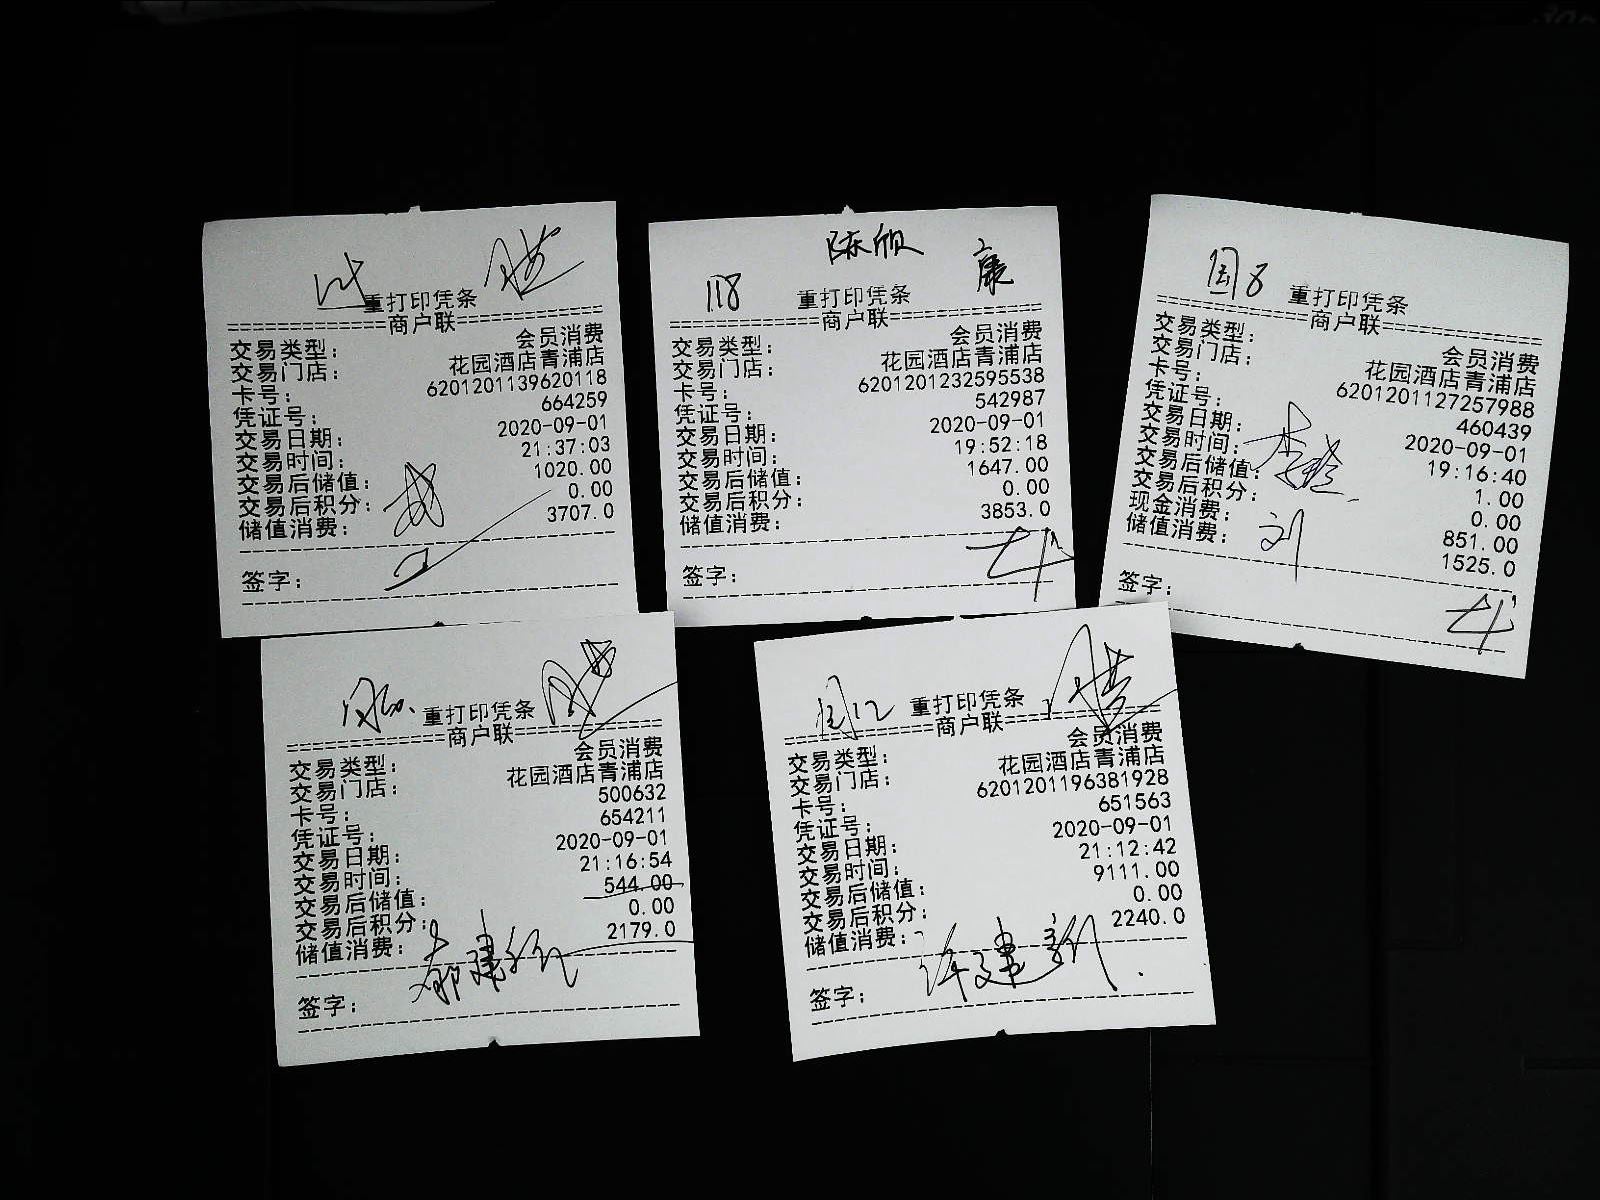 重打印凭条
商户联
交易类型： 会员消费
交易门店： 花园酒店青浦店
卡号： 6201201139620118
凭证号： 664259
交易日期： 2020-09-01
交易时间： 21:37:03
交易后储值： 1020.00
交易后积分： 0.00
储值消费： 3707.0
签字：
陈欣 康
118 重打印凭条
商户联
交易类型： 会员消费
交易门店： 花园酒店青浦店
卡号： 6201201232595538
凭证号： 542987
交易日期： 2020-09-01
交易时间： 19:52:18
交易后储值： 1647.00
交易后积分： 0.00
储值消费： 3853.0
签字：
国8 重打印凭条
商户联
交易类型： 会员消费
交易门店： 花园酒店青浦店
卡号： 6201201127257988
凭证号： 460439
交易日期： 2020-09-01
交易时间： 19:16:40
交易后储值： 1.00
交易后积分： 0.00
现金消费： 851.00
储值消费： 1525.0
刘
签字：
重打印凭条
商户联
交易类型： 会员消费
交易门店： 花园酒店青浦店
卡号： 500632
凭证号： 654211
交易日期： 2020-09-01
交易时间： 21:16:54
交易后储值： 544.00
交易后积分： 0.00
储值消费： 2179.0
签字：
国12 重打印凭条
商户联
交易类型： 会员消费
交易门店： 花园酒店青浦店
卡号： 6201201196381928
凭证号： 651563
交易日期： 2020-09-01
交易时间： 21:12:42
交易后储值： 9111.00
交易后积分： 0.00
储值消费： 2240.0
许建新
签字：